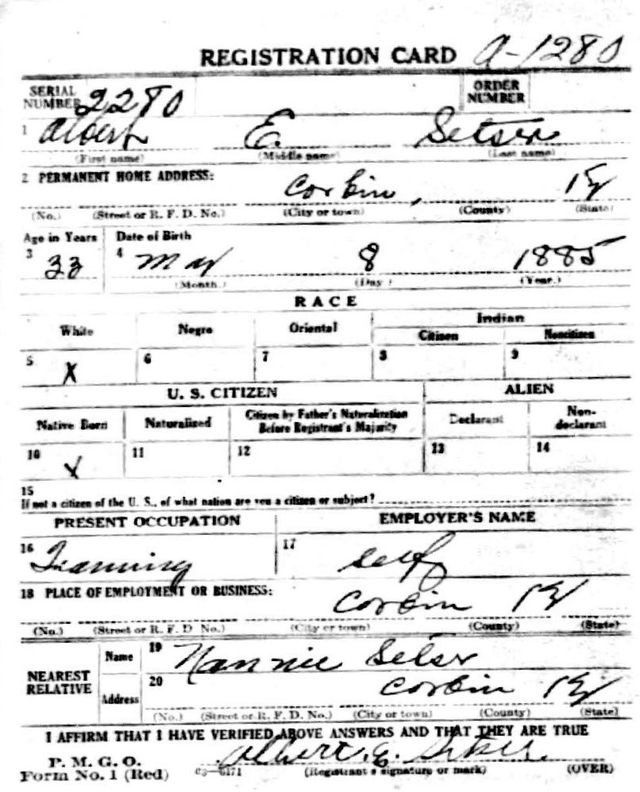 REGISTRATION CARD A-1280
SERIAL NUMBER 2280 ORDER NUMBER
1 Albert E. Setser
(First name) (Middle name) (Last name)
2 PERMANENT HOME ADDRESS: Corbin, Ky
(No.) (Street or R. F. D. No.) (City or town) (County) (State)
Age in Years Date of Birth
3 33 4 May 8 1885
(Month.) (Day.) (Year.)
RACE
White Negro Oriental Indian
Citizen Noncitizen
5 X 6 7 8 9
U. S. CITIZEN ALIEN
Native Born Naturalized Citizen by Father's Naturalization Before Registrant's Majority Declarant Non-declarant
10 X 11 12 13 14
15
If not a citizen of the U. S., of what nation are you a citizen or subject?
PRESENT OCCUPATION EMPLOYER'S NAME
16 Teaming 17 Self
18 PLACE OF EMPLOYMENT OR BUSINESS:
Corbin Ky
(No.) (Street or R. F. D. No.) (City or town) (County) (State)
NEAREST RELATIVE Name 19 Nannie Setser
Address 20 Corbin Ky
(No.) (Street or R. F. D. No.) (City or town) (County) (State)
I AFFIRM THAT I HAVE VERIFIED ABOVE ANSWERS AND THAT THEY ARE TRUE
P. M. G. O. Albert E. Setser
Form No. 1 (Red) 03—6171 (Registrant's signature or mark) (OVER)